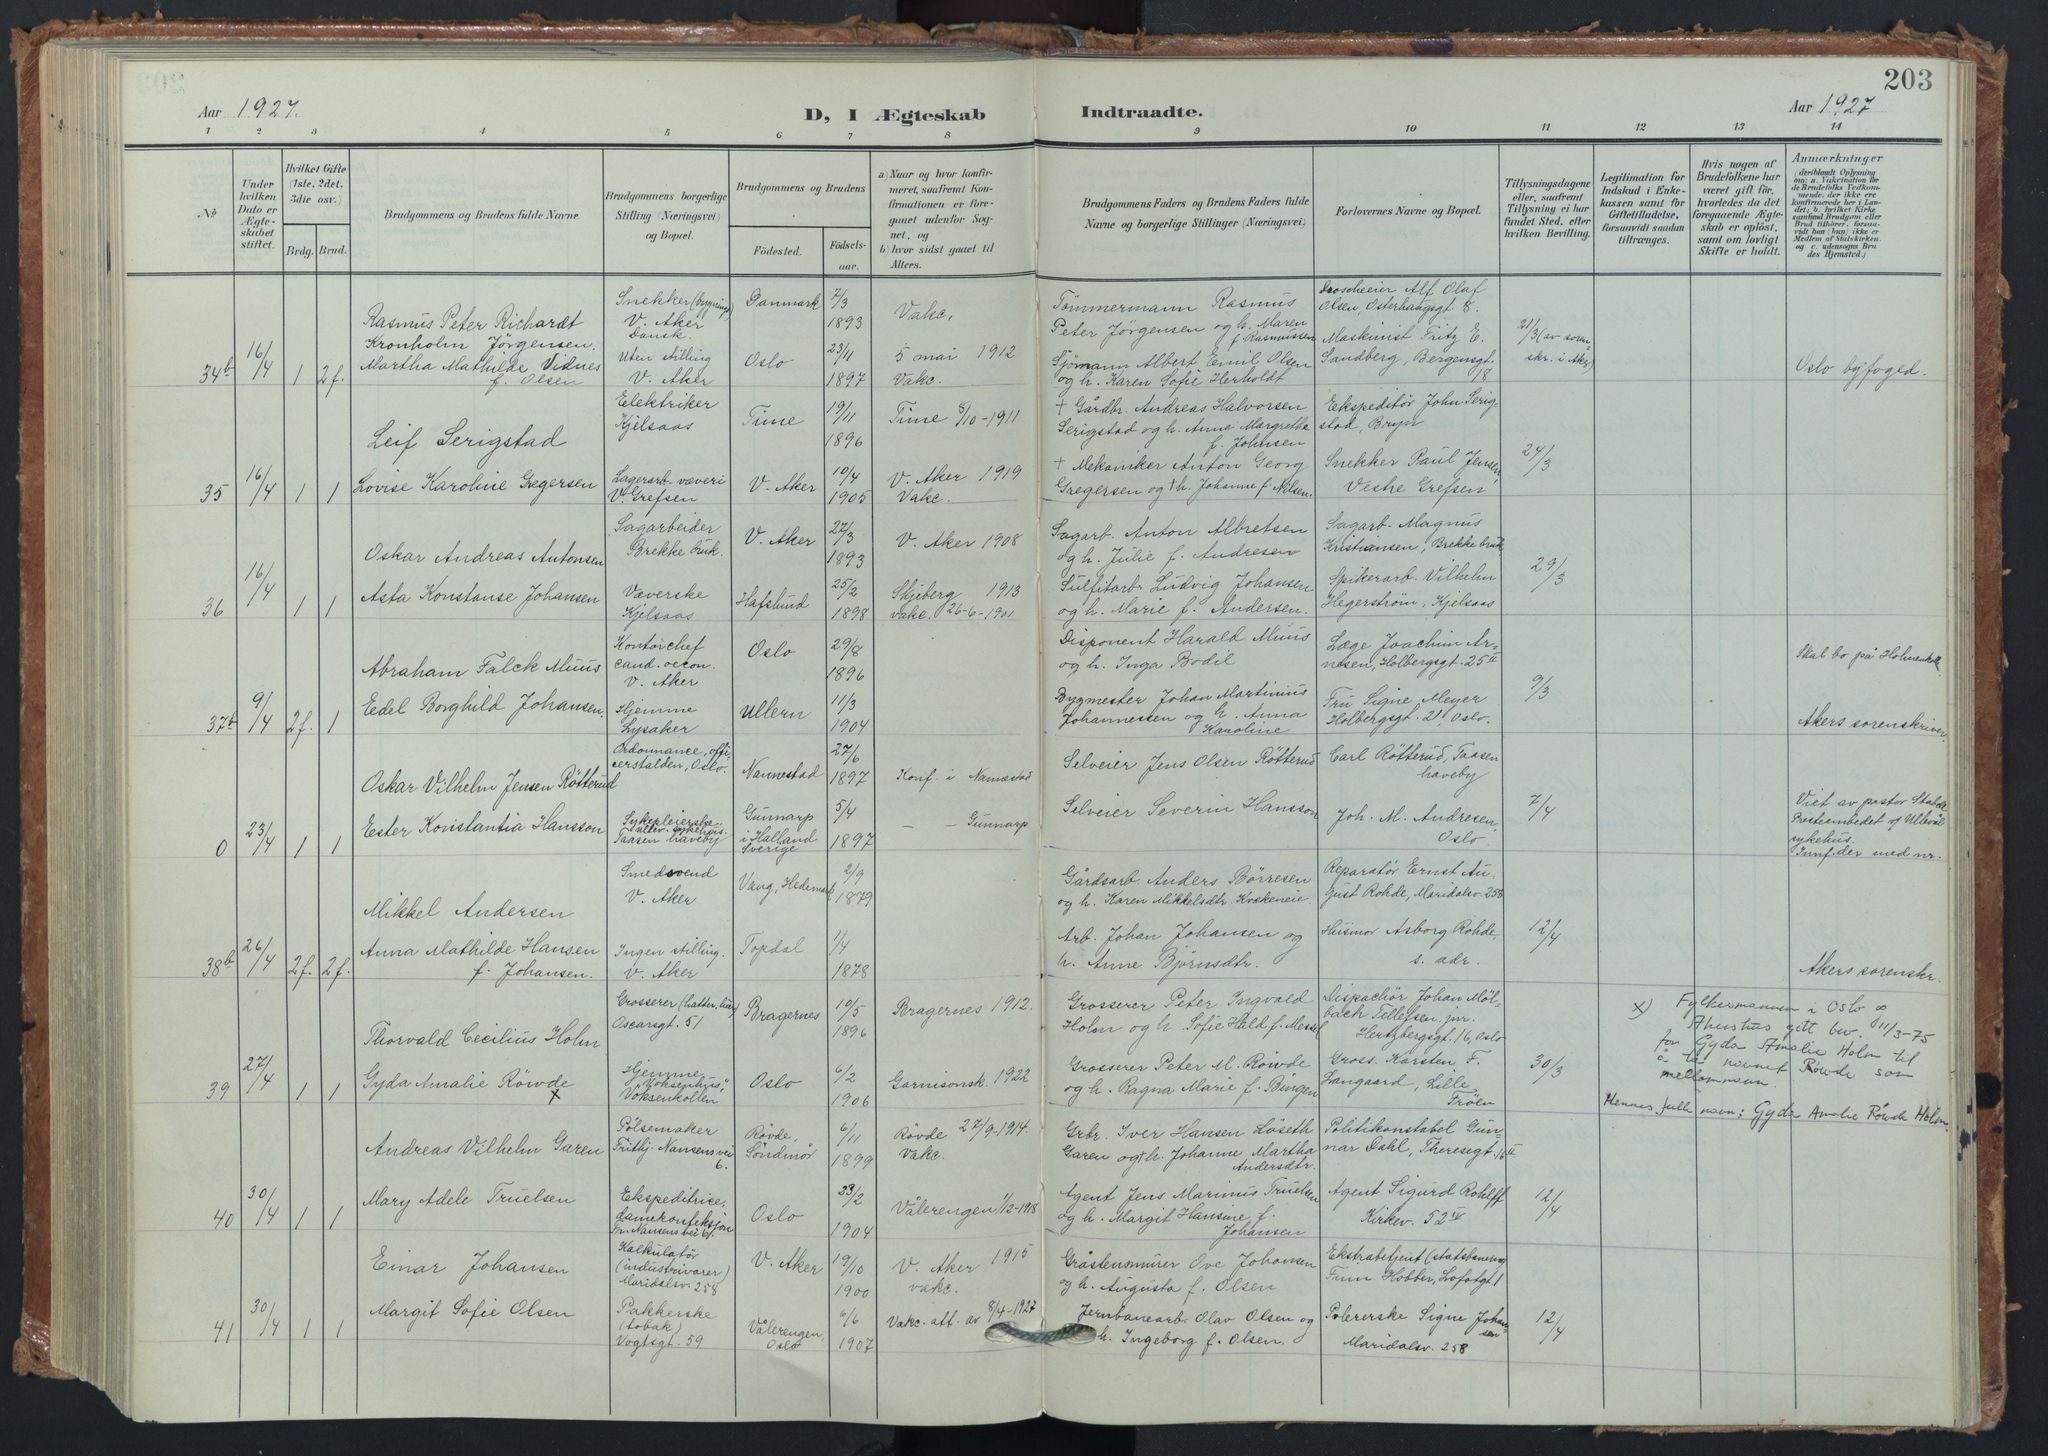 203
Aar 1927.
D, I Ægteskab Indtraadte.
Aar 1927
1 2 3 4 5 6 7 8 9 10 11 12 13 14
No
Under
hvilken
Dato er
Ægte-
skabet
stiftet.
Hvilket Gifte
(1ste, 2det,
3die osv.)
Brdg. Brud.
Brudgommens og Brudens fulde Navne
Brudgommens borgerlige
Stilling (Næringsvei)
og Bopæl.
Brudgommens og Brudens
Födested.
Födsels-
aar.
a) Naar og hvor konfir-
meret, saafremt Kon-
firmationen er fore-
gaaet udenfor Sog-
net, og
b) hvor sidst gaaet til
Alters.
Brudgommens Faders og Brudens Faders fulde
Navne og borgerlige Stillinger (Næringsvei)
Forlovernes Navne og Bopæl.
Tillysningsdagene
eller, saafremt
Tillysning ei har
fundet Sted, efter
hvilken Bevilling.
Legitimation for
Indskud i Enke-
kassen samt for
Giftetilladelse,
forsaavidt saadan
tiltrænges.
Hvis nogen af
Brudefolkene har
været gift för,
hvorledes da det
foregaaende Ægte-
skab er oplöst,
samt om lovligt
Skifte er holdt.
Anmærkninger
(deriblandt Oplysning
om: a. Vaccination for
de Brudefolks Vedkom-
mende, der ikke ere
konfirmerede her i Lan-
det; b. hvilket Kirke-
samfund Brudgom eller
Brud tilhörer, forsaa-
vidt han (hun) ikke er
Medlem af Statskirken,
og c. udensogns Bru-
des Hjemsted.)
34b 16/4 1 2f.
Rasmus Peter Richardt
Kronholm Jørgensen.
Snekker (bygnings)
V. Aker
Dansk.
Danmark 7/3 1893
Vakc.
Tömmermann Rasmus
Peter Jörgensen og h. Maren
f. Rasmussen
Droscheeier Alf Olaf
Olsen, Osterhausgt 8.
Martha Mathilde Vidnes
f. Olsen
Uten stilling
V. Aker
Oslo 23/11 1897
5 mai 1912
Vakc.
Sjömann Albert Emil Olsen
og h. Karen Sofie Herholdt
Maskinist Fritz E.
Sandberg, Bergensgt.
18
21/3 (av soren-
skr. i Aker)
Oslo byfoged.
35 16/4 1 1
Leif Serigstad
Elektriker
Kjelsaas
Time 19/11 1896
Time 8/10-1911
+ Gårdbr. Andreas Halvorsen
Serigstad og h. Anne Margrethe
f. Johnsen
Ekspeditör John Serig-
stad, Bryn
Lovise Karoline Gregersen
Lagerarb. væveri
V. Grefsen
V. Aker 10/4 1905
V. Aker 1919
Vakc.
+ Mekaniker Anton Georg
Gregersen og +h. Johanne f. Nilsen.
Snekker Paul Jensen,
Vestre Grefsen
24/3
36 16/4 1 1
Oskar Andreas Antonsen
Sagarbeider
Brekke bruk.
V. Aker 27/3 1893
V. Aker 1908
Sagarb. Anton Albretsen
og h. Julie f. Andresen
Sagarb. Magnus
Kristiansen, Brekke bruk
Asta Konstanse Johansen
Væverske
Kjelsaas
Hafslund 25/2 1898
Skjeberg 1913
vakc. 26-6-1901
Sulfitarb. Ludvig Johansen
og h. Marie f. Andersen.
Spikerarb. Vilhelm
Hegerström, Kjelsaas
29/3
37b 9/4 2f. 1
Abraham Falck Muus
Kontorchef
cand. oecon.
V. Aker
Oslo 29/8 1896
Disponent Harald Muus
og h. Inga Bodil
Læge Joachim Ar-
nesen, Holbergsgt. 25 II
Skal bo på Holmenkoll.
Eedel Borghild Johansen.
Hjemme
Lysaker
Ullern 11/3 1904
Bygmester Johan Martinius
Johannessen og h. Anna
Karoline
Fru Signe Meyer
Holbergsgt. 21 Oslo.
9/3
Akers sorenskriver.
0 23/4 1 1
Oskar Vilhelm Jensen Rötterud
Ordonnance, offi-
cerstalden, Oslo.
Nannestad 27/6 1897
Konf. i Nannestad
Selveier Jens Olsen Rötterud
Carl Rötterud, Taasen
haveby
Ester Konstantia Hansson
Sykepleierske
Taasen haveby
Gunnarp
i Halland
Sverige
5/4 1897
— — Gunnarp
Selveier Severin Hansson
Joh. M. Andresen,
Oslo.
7/4
Viet av pastor
Presteembedet v/ Ullevål
sykehus.
Innf. der med nr.
38b 26/4 2f. 2f.
Mikkel Andersen
Smedsvend
V. Aker
Vang, Hedemark 2/9 1879
Gårdsarb. Anders Börresen
og h. Karen Mikkelsdtr. Kvækeneie
Reparatör Ernst Au-
gust Rohde, Maridalsv. 258
Anna Mathilde Hansen
f. Johansen.
Ingen stilling.
V. Aker
Topdal 1/4 1878
Arb. Johan Johansen og
h. Anne Björnsdtr.
Husmor Asborg Rohde,
s. adr.
12/4
Akers sorenskr.
39 27/4 1 1
Thorvald Cecilius Holm
Grosserer (hatter, huer)
Oscarsgt. 51
Bragernes 10/5 1896
Bragernes 1912.
Grosserer Peter Ingvald
Holm og h. Sofie Hald f. Messel
Dispachör Johan Möl-
bach Tellefsen, jnr.
Hertzbergsgt. 16, Oslo
Gyda Amalie Röwde
x
Hjemme
"Voksenhus",
Voksenkollen
Oslo 6/2 1906
Garnisonsk. 1922
Grosserer Peter M. Röwde
og h. Ragna Marie f. Bingen
Gross. Karsten F.
Langaard, Lille
Fröen
30/3
x) Fylkesmannen i Oslo og
Akershus gitt bev. 11/3-75
for Gyda Amalie Holm til
å ta navnet Röwde som
mellomnavn.
Hennes fulle navn: Gyda Amalie Röwde Holm.
40 30/4 1 1
Andreas Vilhelm Garen
Pölsemaker
Frithj. Nansens vei
6.
Rövde,
Söndmör
6/11 1899
Rövde 27/9-1914.
Vakc.
Grbr. Iver Hansen Löseth
Garen og +h. Johanne Martha
Andersdtr.
Politikonstabel Gun-
nar Dahl, Theresegt. 16 II
Mary Adele Truelsen
Ekspeditrice,
damekonfeksjon
Fr. Nansens vei 6.
Oslo 23/2 1904
Vålerengen 1/12-1918
Agent Jens Marinus Truelsen
og h. Margit Hansine f.
Johansen
Agent Sigurd Rohlff
Kirkev. 52 IV
12/4
41 30/4 1 1
Einar Johansen
Kalkulatör
(industrivarer)
Maridalsv. 258
V. Aker 19/10 1900
V. Aker 1915
vakc.
Gråstensmurer Ove Johansen
og h. Augusta f. Olsen
Ekstrabetjent (statsbanerne)
Finn Hobber, Lofotgt 1
Margit Sofie Olsen
Pakkerske
(tobak)
Vogtsgt. 59
Vålerengen,
Oslo
6/6 1907
Vakc. att. av 8/4-1927
Jernbanearb. Olav Olsen og
h. Ingeborg f. Olsen.
Polererske Signe Johan-
sen
Maridalsv. 258
12/4